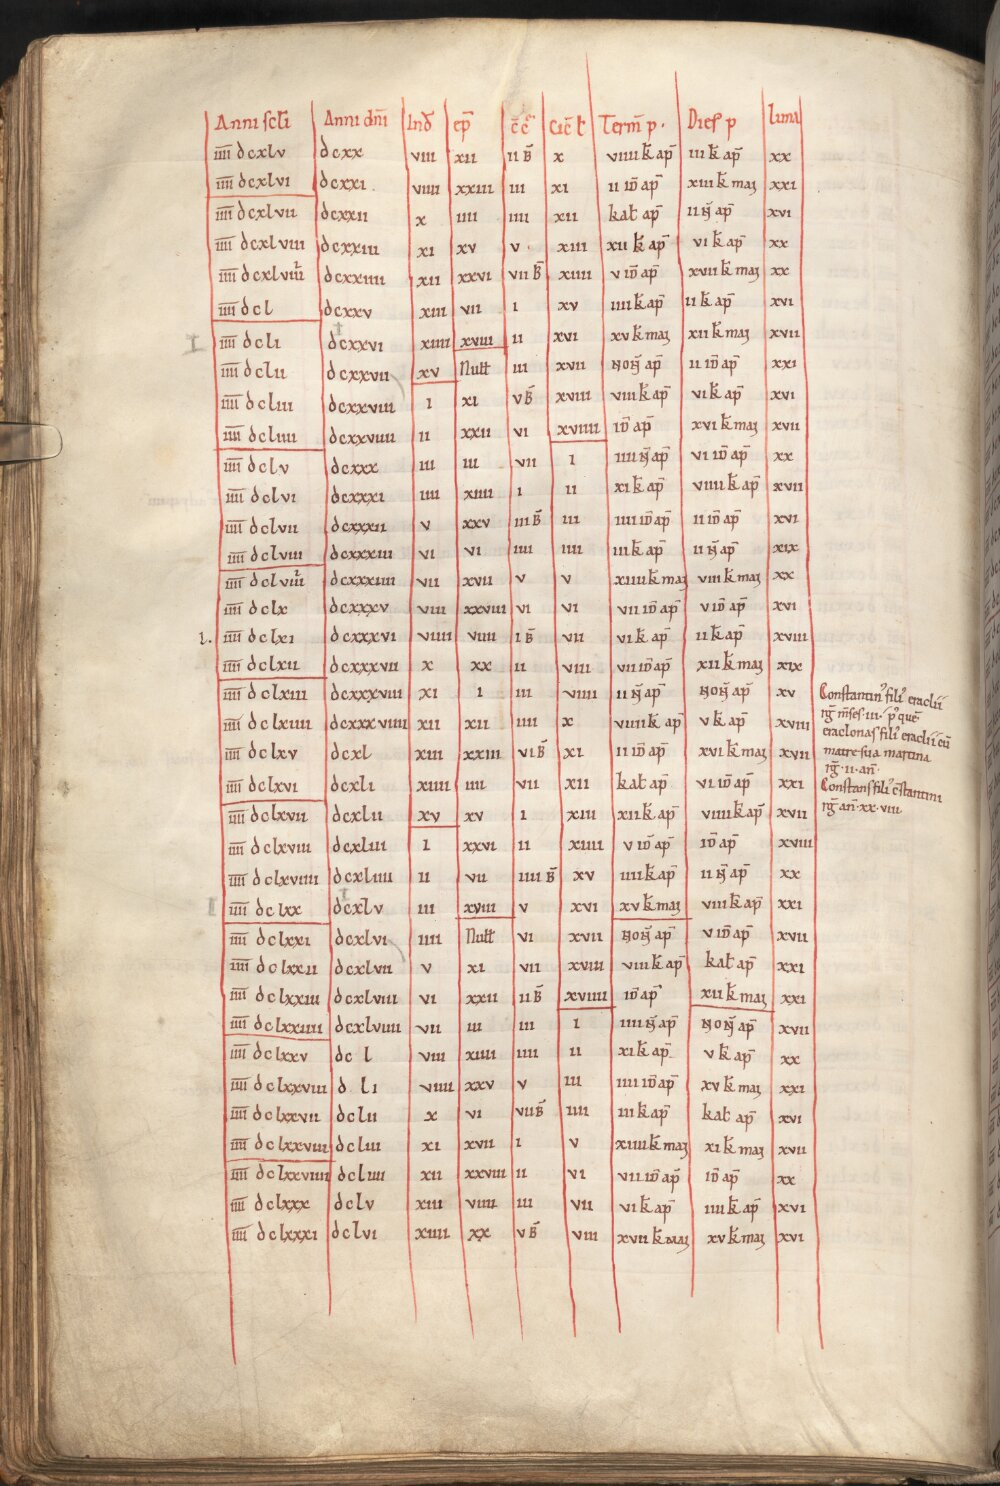 Anni sc̄li Anni dn̄i Ind̄ ep̄ c̄c̄ cic̄ł Term̄ p. Dies p luna
īīīī dcxlv dcxx viii xii ii B̄ x viiii k̄ ap̄ iii k̄ ap̄ xx
īīīī dcxlvi dcxxi viiii xxiii iii xi ii id̄ ap̄ xiii k̄ maȝ xxi
īīīī dcxlvii dcxxii x iiii iiii xii kał ap̄ ii n̄ ap̄ xvi
īīīī dcxlviii dcxxiii xi xv v xiii xii k̄ ap̄ vi k̄ ap̄ xx
īīīī dcxlviiii dcxxiiii xii xxvi vii B̄ xiiii v id̄ ap̄ xvii k̄ maȝ xx
īīīī dcl dcxxv xiii vii i xv iiii k̄ ap̄ ii k̄ ap̄ xvi
īīīī dcli dcxxvi xiiii xviii ii xvi xv k̄ maȝ xii k̄ maȝ xvii
īīīī dclii dcxxvii xv Null iii xvii non̄ ap̄ ii id̄ ap̄ xxi
īīīī dcliii dcxxviii i xi v B̄ xviii viii k̄ ap̄ vi k̄ ap̄ xvi
īīīī dcliiii dcxxviiii ii xxii vi xviiii id̄ ap̄ xvi k̄ maȝ xvii
īīīī dclv dcxxx iii iii vii i iiii n̄ ap̄ vi id̄ ap̄ xx
īīīī dclvi dcxxxi iiii xiiii i ii xi k̄ ap̄ viiii k̄ ap̄ xvii
īīīī dclvii dcxxxii v xxv iii B̄ iii iiii id̄ ap̄ ii id̄ ap̄ xvi
īīīī dclviii dcxxxiii vi vi iiii iiii iii k̄ ap̄ ii n̄ ap̄ xix
īīīī dclviiii dcxxxiiii vii xvii v v xiiii k̄ maȝ viii k̄ maȝ xx
īīīī dclx dcxxxv viii xxviii vi vi vii id̄ ap̄ v id̄ ap̄ xvi
l. īīīī dclxi dcxxxvi viiii viiii i B̄ vii vi k̄ ap̄ ii k̄ ap̄ xviii
īīīī dclxii dcxxxvii x xx ii viii vii id̄ ap̄ xii k̄ maȝ xix
īīīī dclxiii dcxxxviii xi i iii viiii ii n̄ ap̄ non̄ ap̄ xv
Constantin' fili' eraclii
īīīī dclxiiii dcxxxviiii xii xii iiii x viiii k̄ ap̄ v k̄ ap̄ xviii
rḡ m̄ses·iii· p' quē
eraclonas fili' eraclii cū
īīīī dclxv dcxl xiii xxiii vi B̄ xi ii id̄ ap̄ xvi k̄ maȝ xvii
matre sua martina
rḡ·ii·an̄·
īīīī dclxvi dcxli xiiii iiii vii xii kał ap̄ vi id̄ ap̄ xxi
Constans fili' c̄stantini
rḡ an̄·xx·viii
īīīī dclxvii dcxlii xv xv i xiii xii k̄ ap̄ viiii k̄ ap̄ xvii
īīīī dclxviii dcxliii i xxvi ii xiiii v id̄ ap̄ id̄ ap̄ xviii
īīīī dclxviiii dcxliiii ii vii iiii B̄ xv iiii k̄ ap̄ ii n̄ ap̄ xx
īīīī dclxx dcxlv iii xviii v xvi xv k̄ maȝ viii k̄ ap̄ xxi
īīīī dclxxi dcxlvi iiii Null vi xvii non̄ ap̄ v id̄ ap̄ xvii
īīīī dclxxii dcxlvii v xi vii xviii viii k̄ ap̄ kał ap̄ xxi
īīīī dclxxiii dcxlviii vi xxii ii B̄ xviiii id̄ ap̄ xii k̄ maȝ xxi
īīīī dclxxiiii dcxlviiii vii iii iii i iiii n̄ ap̄ non̄ ap̄ xvii
īīīī dclxxv dc l viii xiiii iiii ii xi k̄ ap̄ v k̄ ap̄ xx
īīīī dclxxviii d li viiii xxv v iii iiii id̄ ap̄ xv k̄ maȝ xxi
īīīī dclxxvii dclii x vi vii B̄ iiii iii k̄ ap̄ kał ap̄ xvi
īīīī dclxxviii dcliii xi xvii i v xiiii k̄ maȝ xi k̄ maȝ xvii
īīīī dclxxviiii dcliiii xii xxviii ii vi vii id̄ ap̄ id̄ ap̄ xx
īīīī dclxxx dclv xiii viiii iii vii vi k̄ ap̄ iiii k̄ ap̄ xvi
īīīī dclxxxi dclvi xiiii xx v B̄ viii xvii k̄ maȝ xv k̄ maȝ xvi